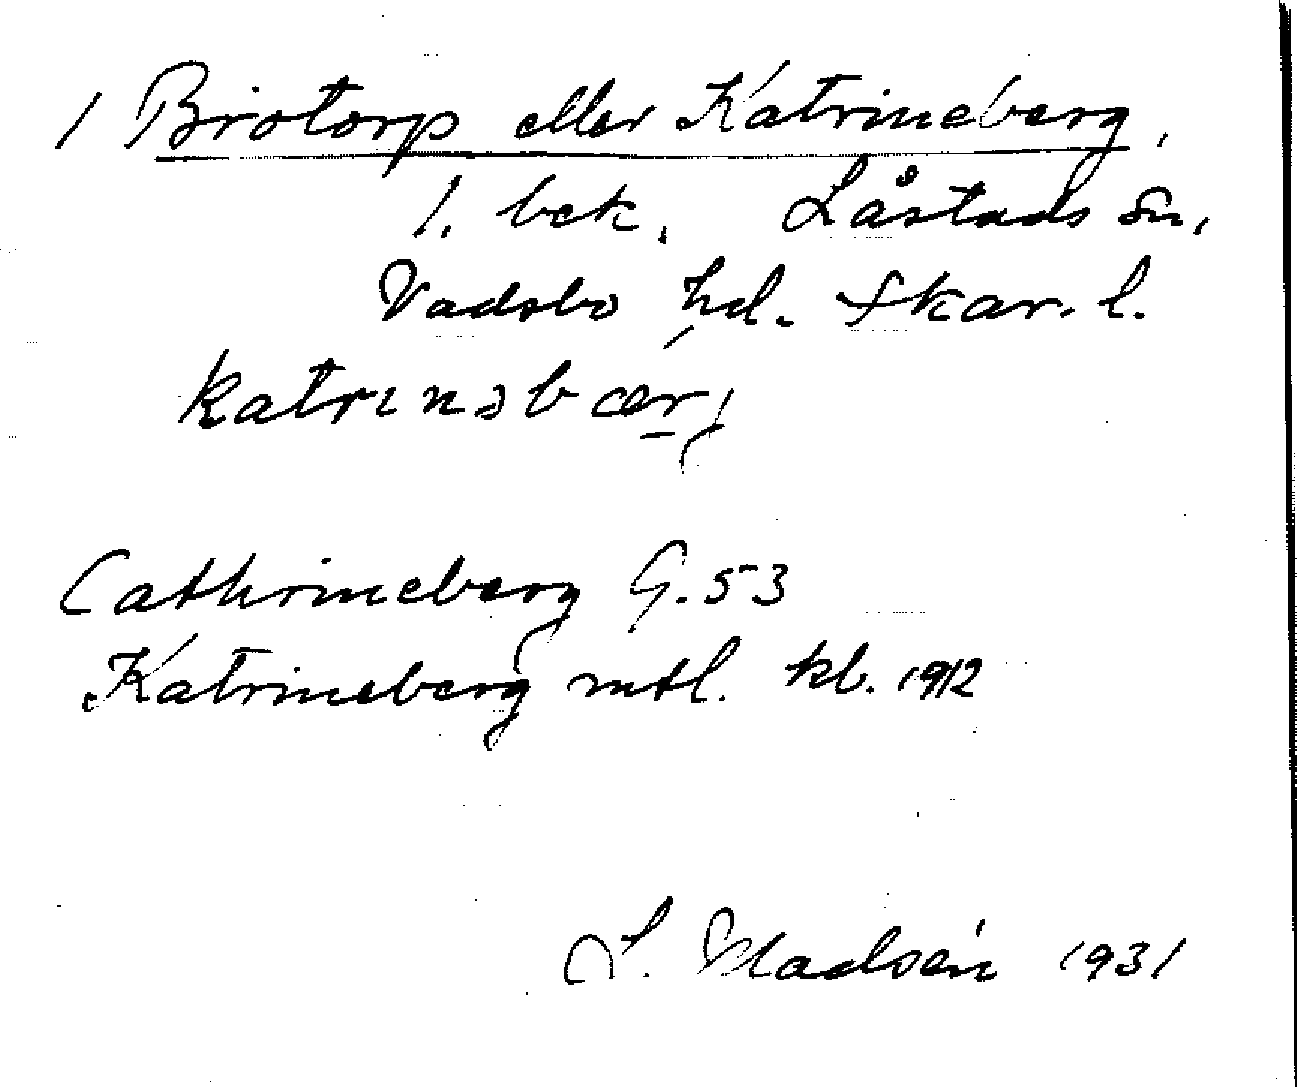 1 Brotorp eller Katrineberg,
1. bek. Låstads sn,
Vadsbo hd. Skar. l.
katrinsbær
Cathrineberg G. 53
Katrineberg mtl. kb. 1912
1931